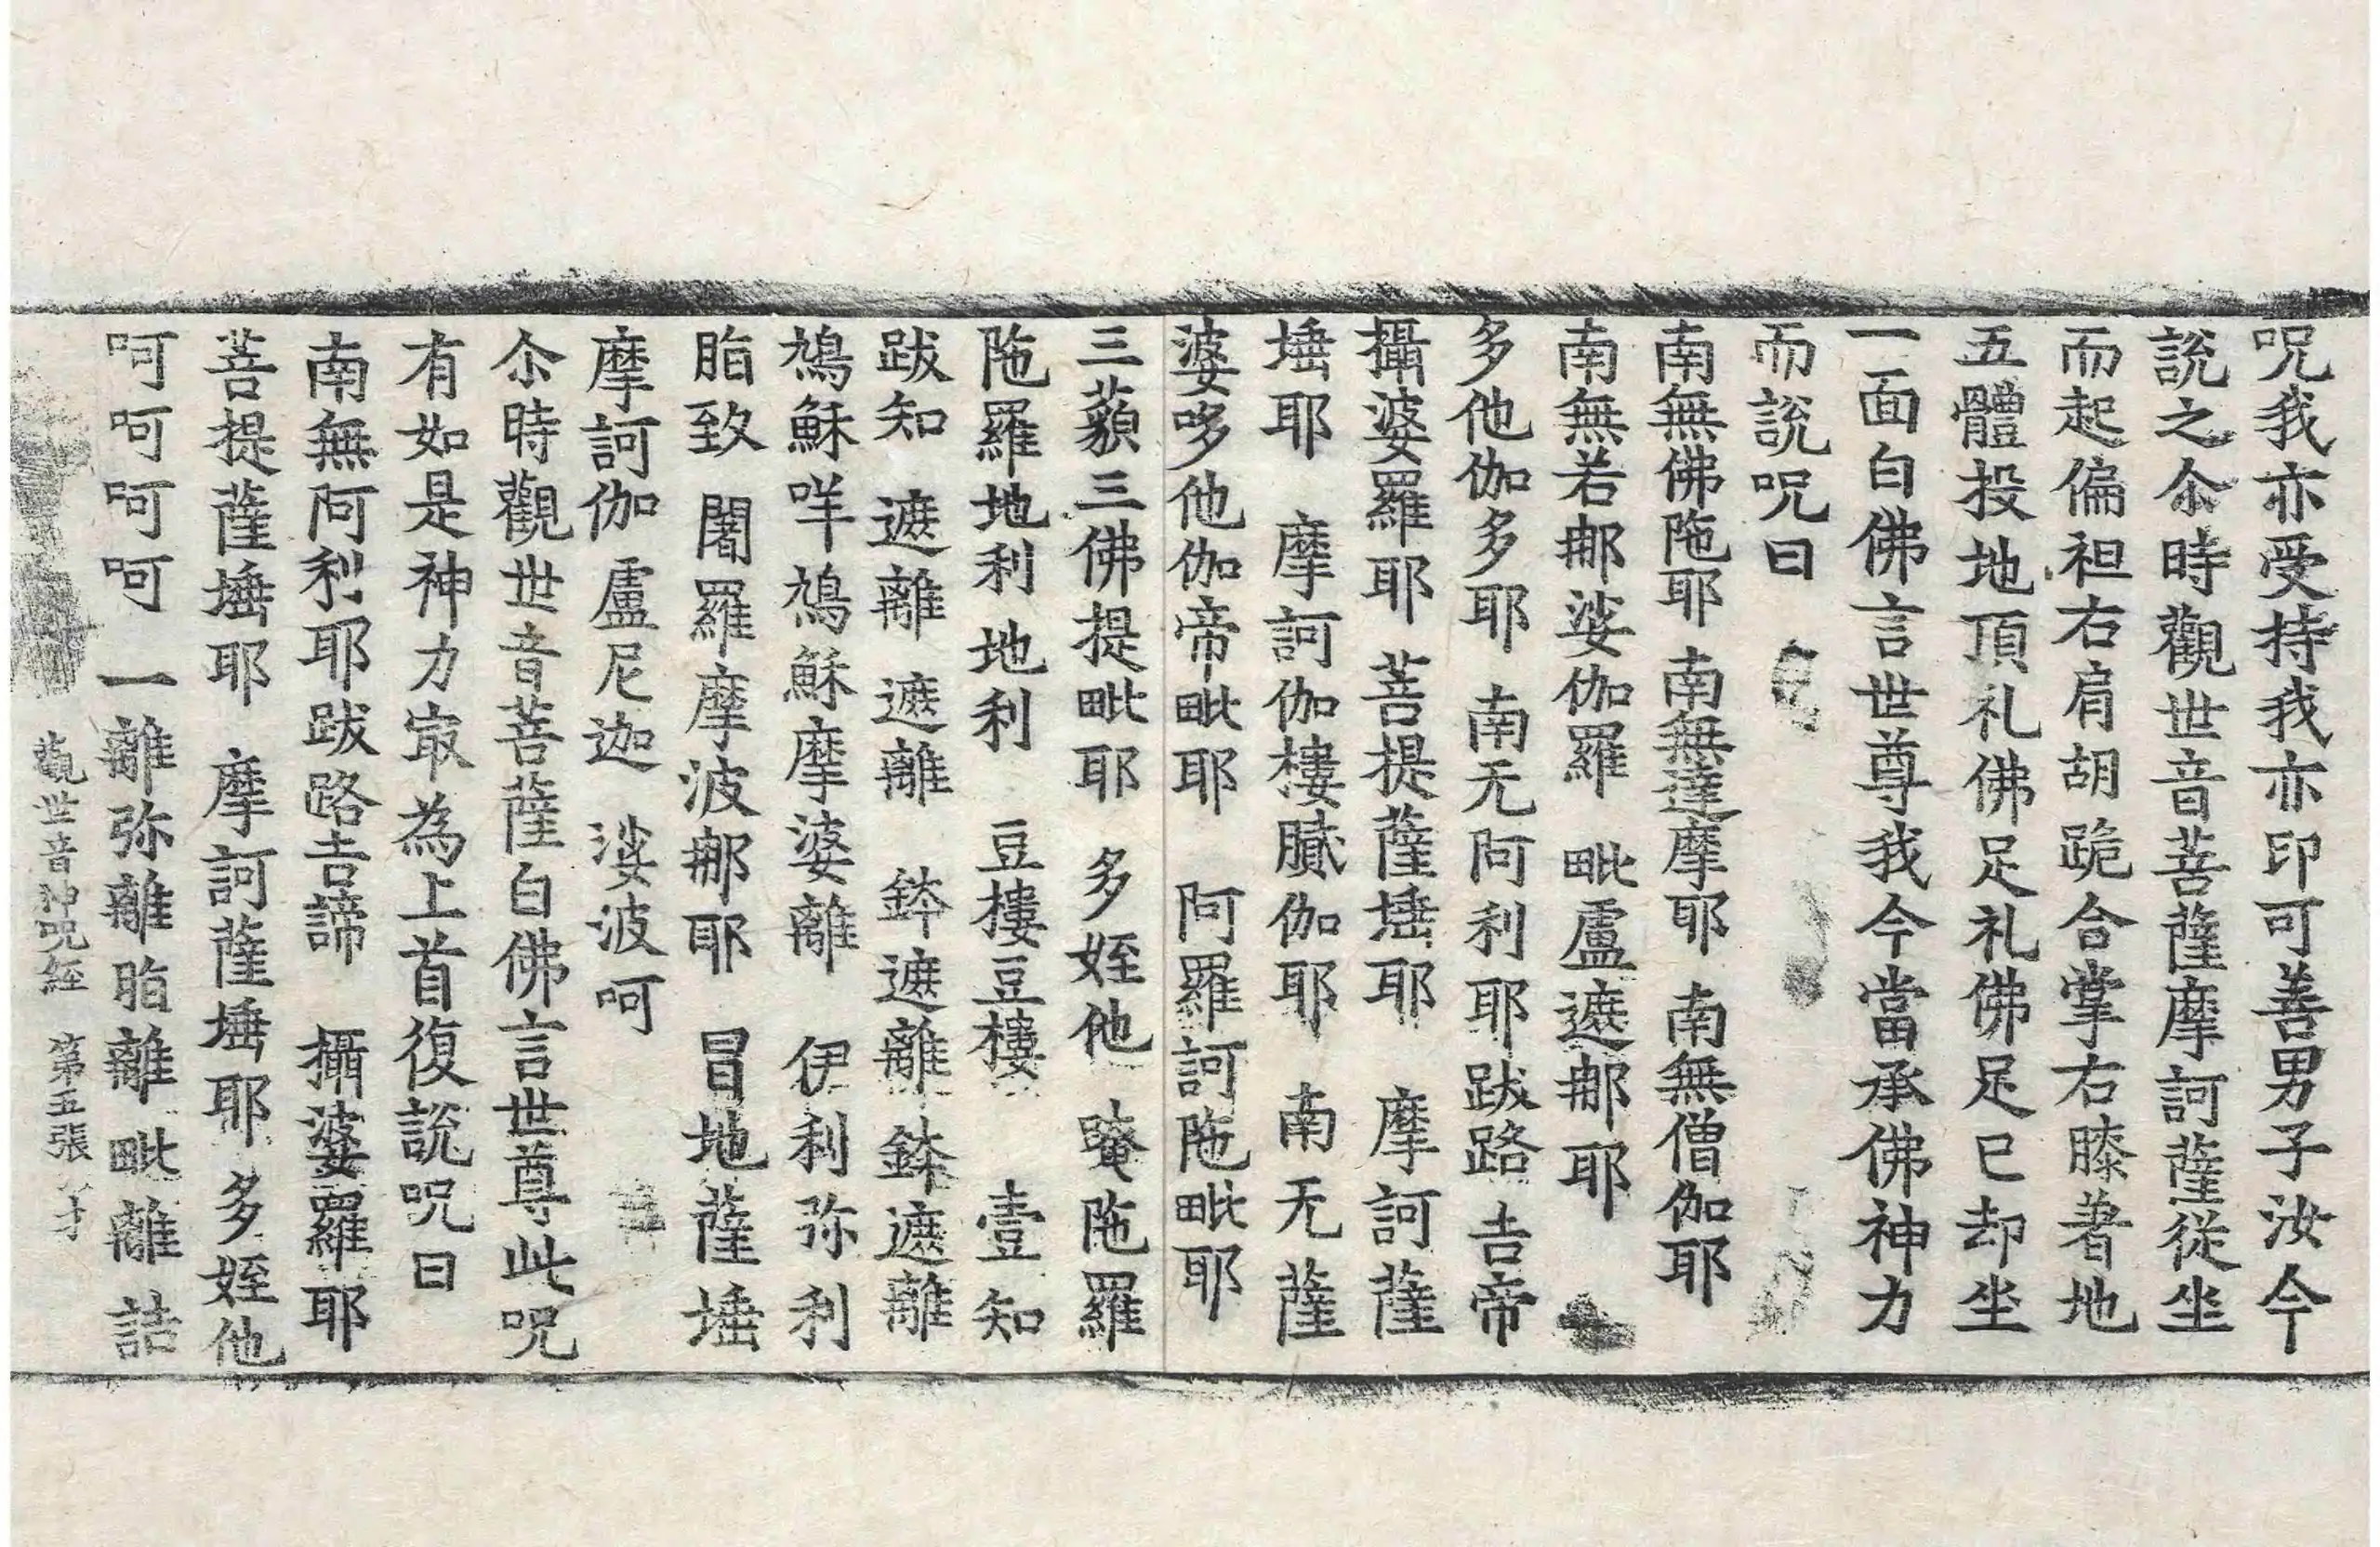 呪我亦受持我亦印可善男子汝今
說之尒時觀世音菩薩摩訶薩從坐
而起偏袒右肩胡跪合掌右膝著地
五體投地頂礼佛足礼佛足已却坐
一面白佛言世尊我今當承佛神力
而說呪曰
南無佛陁耶 南無達摩耶 南無僧伽耶
南無若那娑伽羅 毗盧遮那耶
多他伽多耶 南无阿利耶跋路吉帝
攝婆羅耶 菩提薩埵耶 摩訶薩
埵耶 摩訶伽樓膩伽耶 南无薩
婆哆他伽帝毗耶 阿羅訶陁毗耶
三藐三佛提毗耶 多姪他 唵陁羅
陁羅地利地利 豆樓豆樓 壹知
跋知 遮離 遮離 鉢遮離鉢遮離
鳩穌咩鳩穌摩婆離 伊利弥利
脂致 闍羅摩波那耶 冒地薩埵
摩訶伽盧尼迦 娑波呵
尒時觀世音菩薩白佛言世尊此呪
有如是神力㝡為上首復說呪曰
南無阿利耶跋路吉諦 攝婆羅耶
菩提薩埵耶 摩訶薩埵耶 多姪他
呵呵呵呵 一離弥離脂離毗離詰
觀世音神呪經 第五張 才